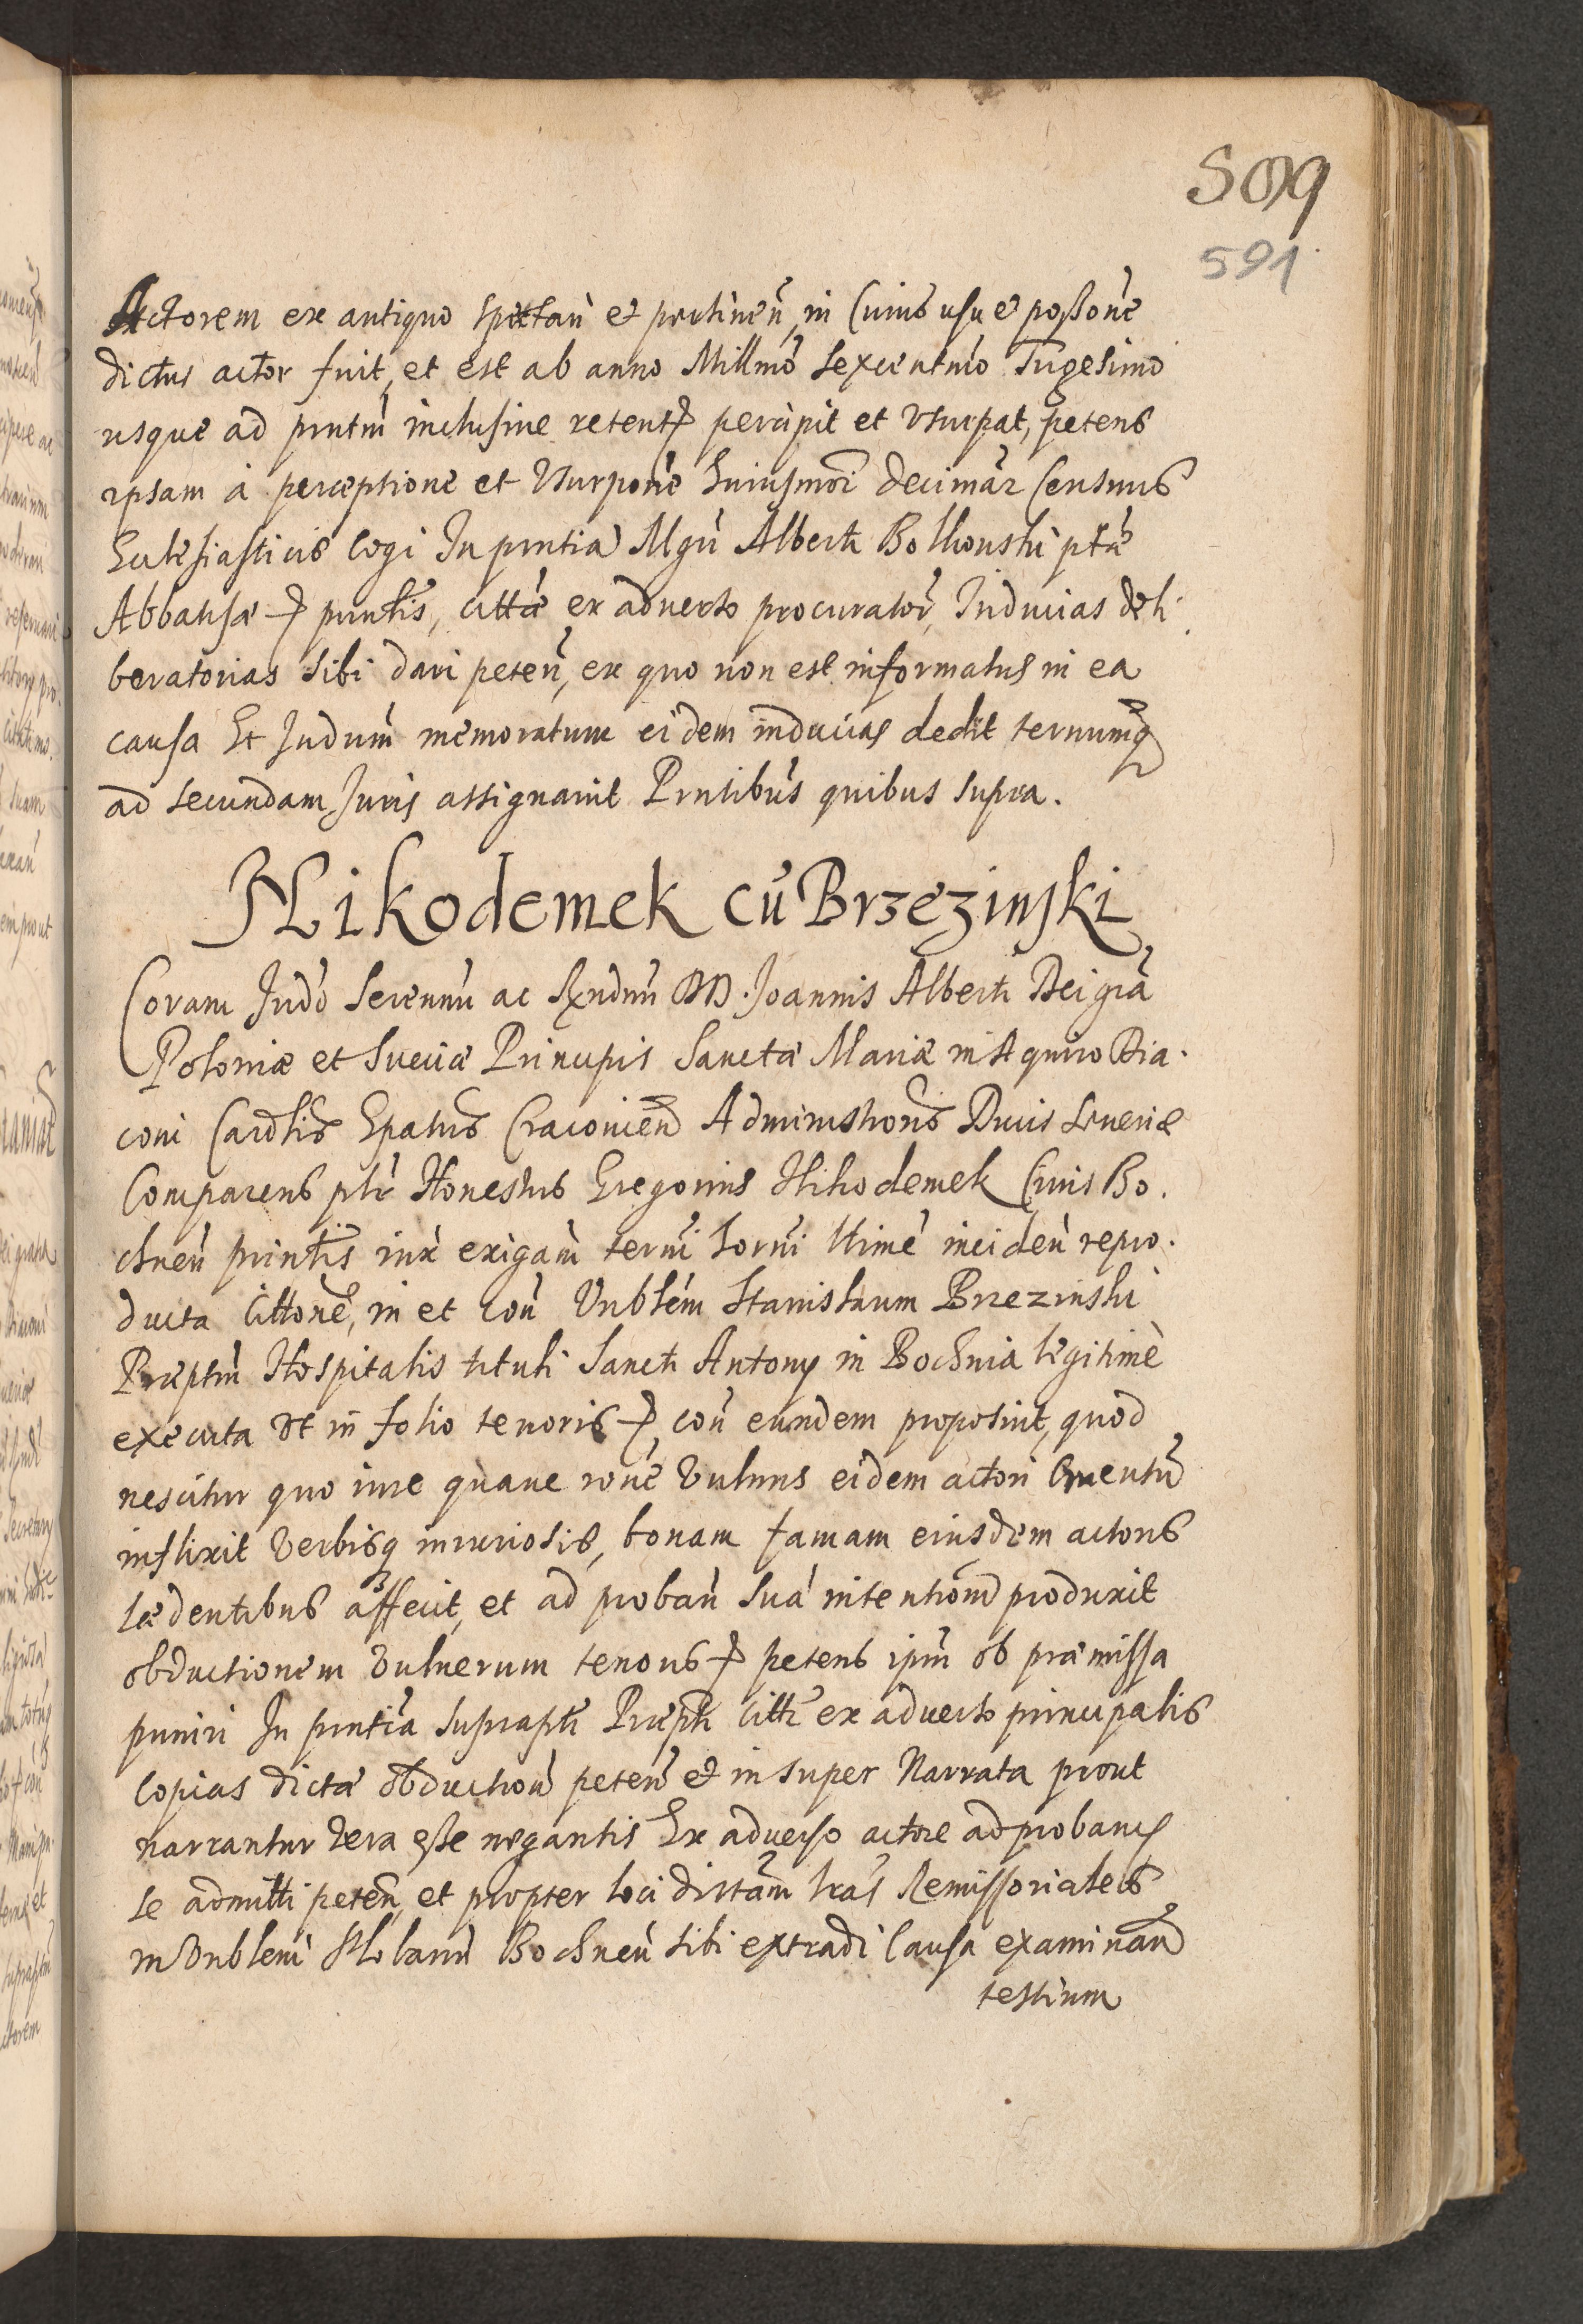 509
591
Actorem ex antiquo spectan et pertinen, in Cuius usu e possone
dictus actor fuit, et est ab anno Millmo sexcentmo Trigesimo
usque ad pntm inclusiue retent percipit et vsurpat, petens
ipsam a perceptione et Vsurpone huiusmoi decimar Censuris
Ecclesiasticis cogi In pntia Mgci Alberti Bolhonski ptae
Abbatissae pnntis, cittae ex aduerso procurator, Inducias deli-
beratorias sibi dari peten, ex quo non est informatus in ea
causa Et Judum memoratum eidem inducias dedit ternumq
ad secundam Juris assignauit Pntibus quibus supra.
Nikodemek cu Brzezinski
Coram Judo Serennu ac Rndmi DD. Joannis Alberti Dei gra
Poloniae et Sueciae Principis Sanctae Mariae in Aquiro Dia-
coni Cardlis Epatus Cracouien Administrons Ducis Seueriae
Comparens plr Honestus Gregorius Nikodemek Ciuis Bo-
chnen printis iux exigam termi horni ltime inciden repro-
ducta Cittone, in et con Vnblem Stanislaum Brzezinski
Praeptm Hospitalis tituli Sancti Antony in Bochnia legitime
executa vt in folio tenoris con eundem proposuit, quod
nescitur quo iure quaue rone Vulnus eidem actori Cruentu
inflixit Verbisq iniuriosis, bonam famam eiusdem actoris
laedentibus affecit, et ad proban sua intention produxit
obductionem Vulnerum tenoris petens ipm ob praemissa
puniri In pntia suprapti Praepti Citti ex aduerso principalis
Copias dictae obduction peten et insuper Narrata prout
narrantur Vera esse negantis Ex aduerso actore ad proban
se admitti peten, et propter loci distam lras Remissoriales
in Vnblem Plobanu Bochnen sibi extradi Causa examinan
testium